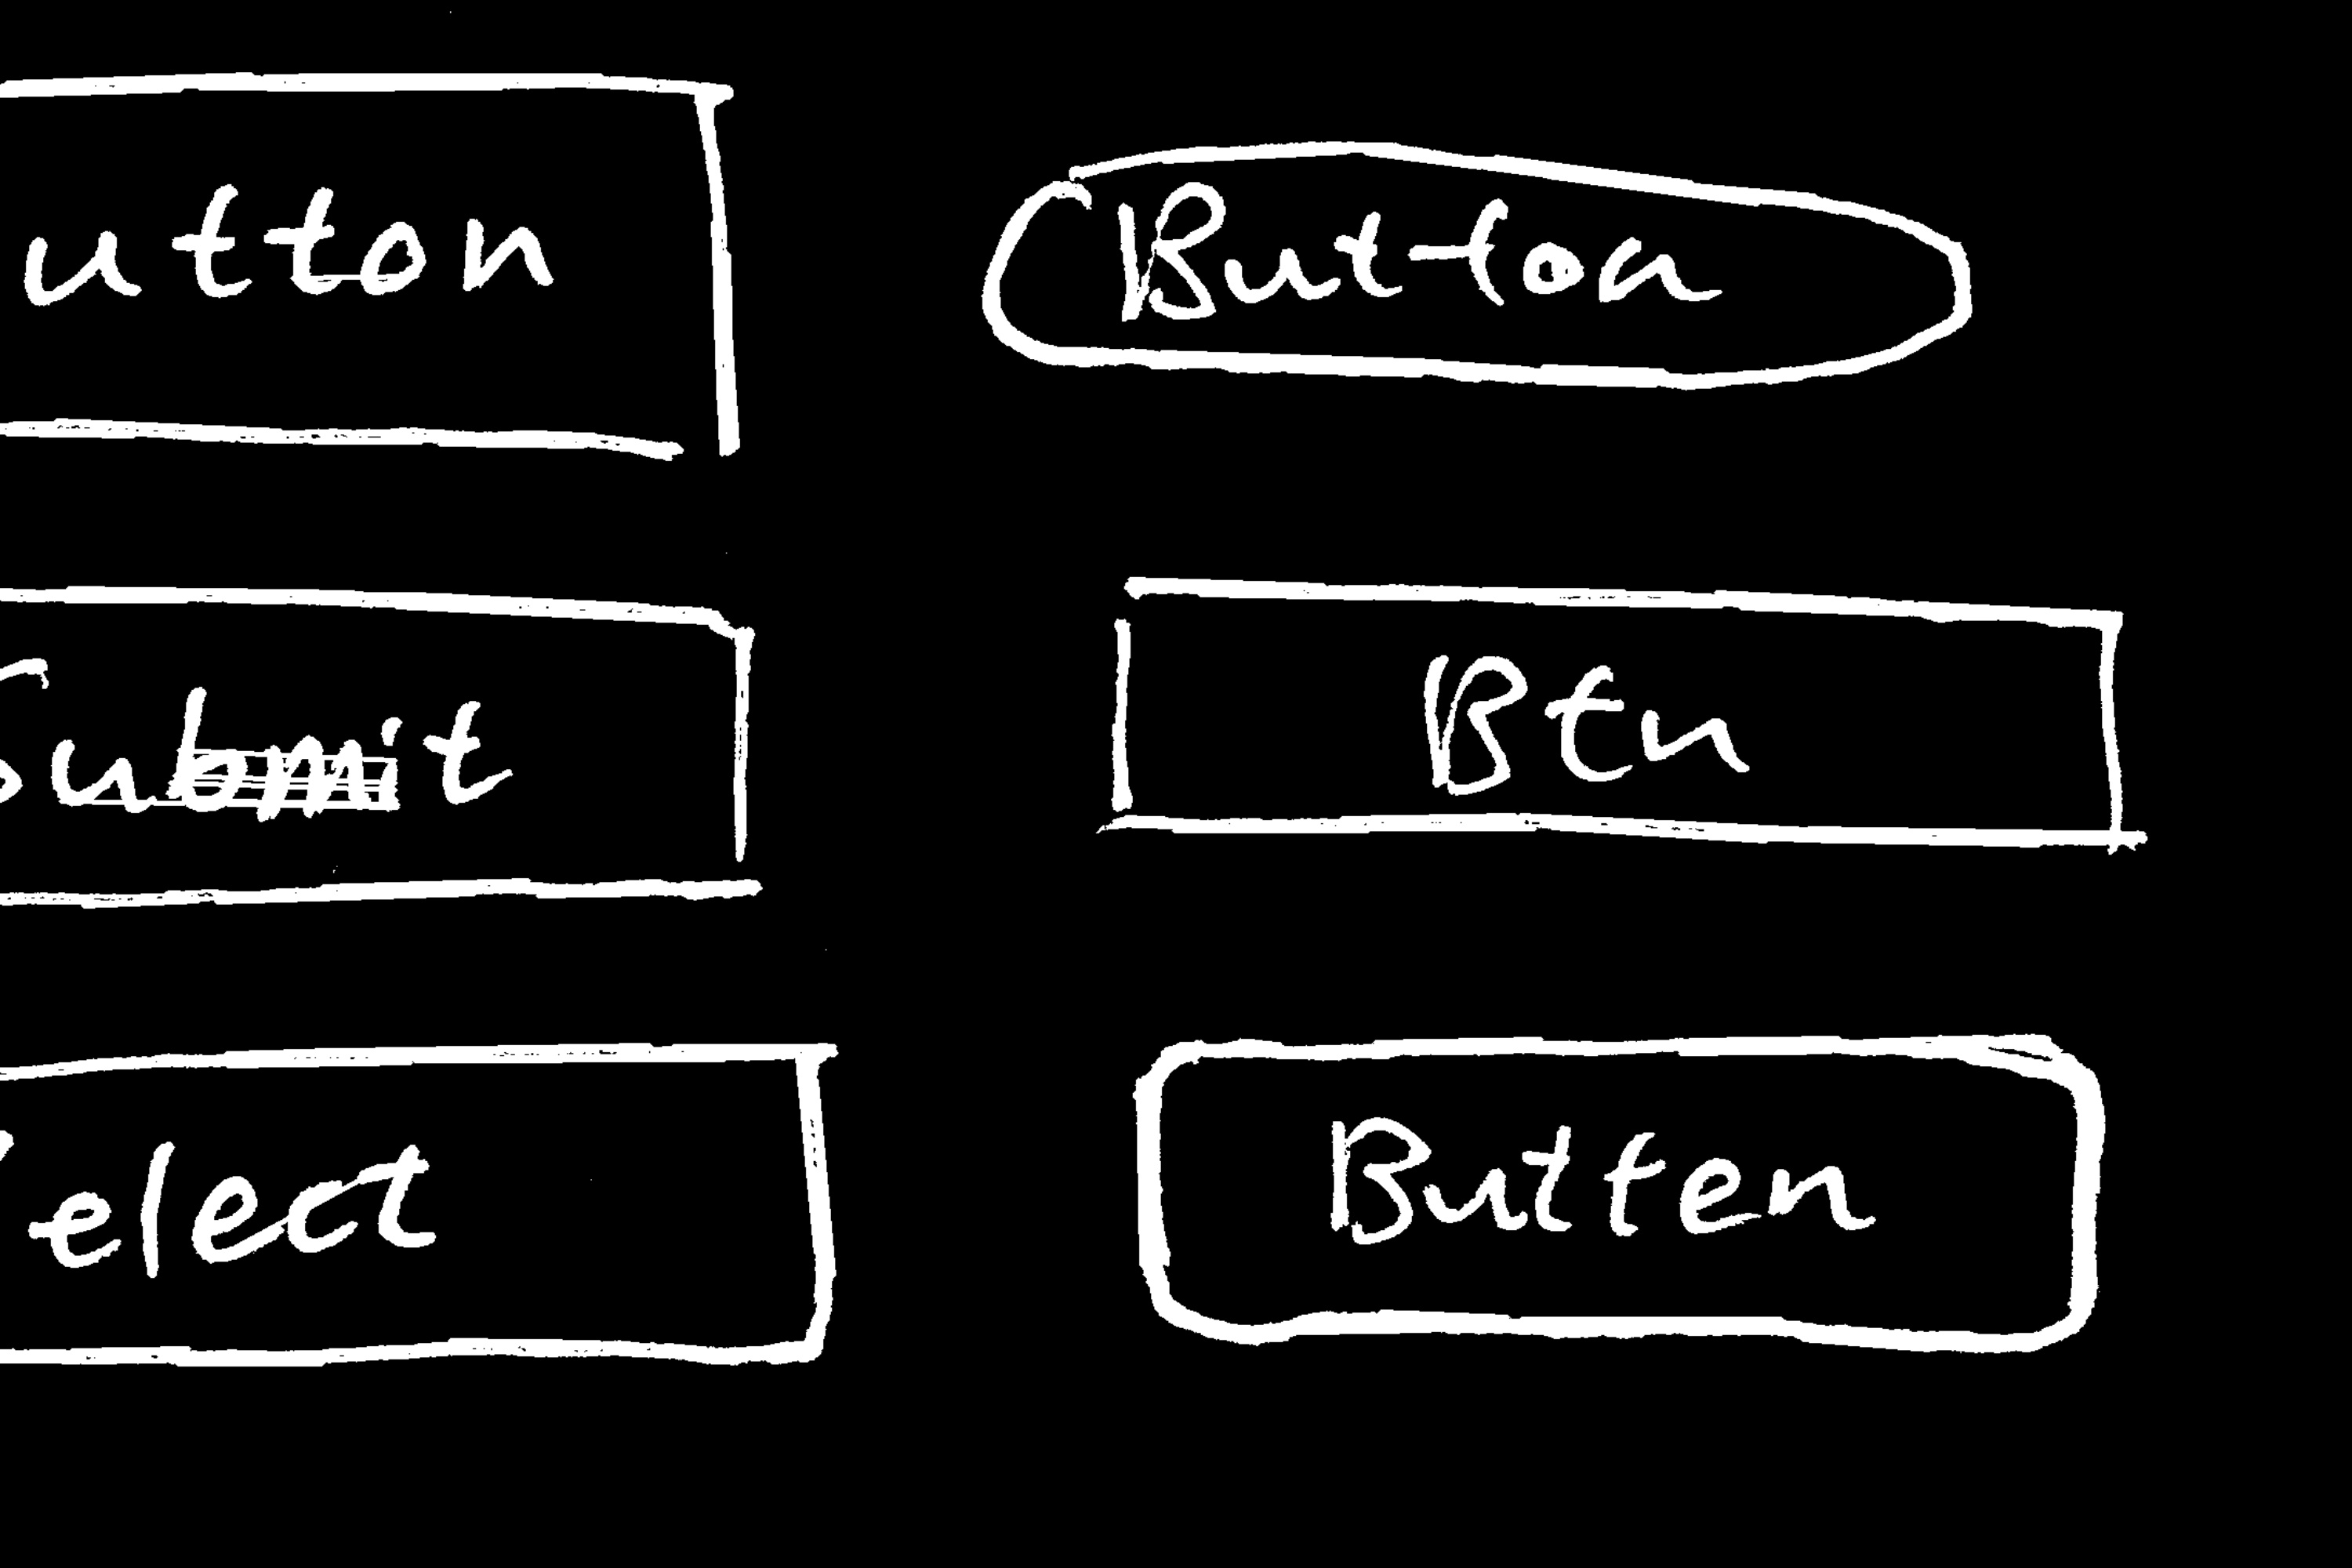 utton
Button
Submit
Btn
elect
Butten